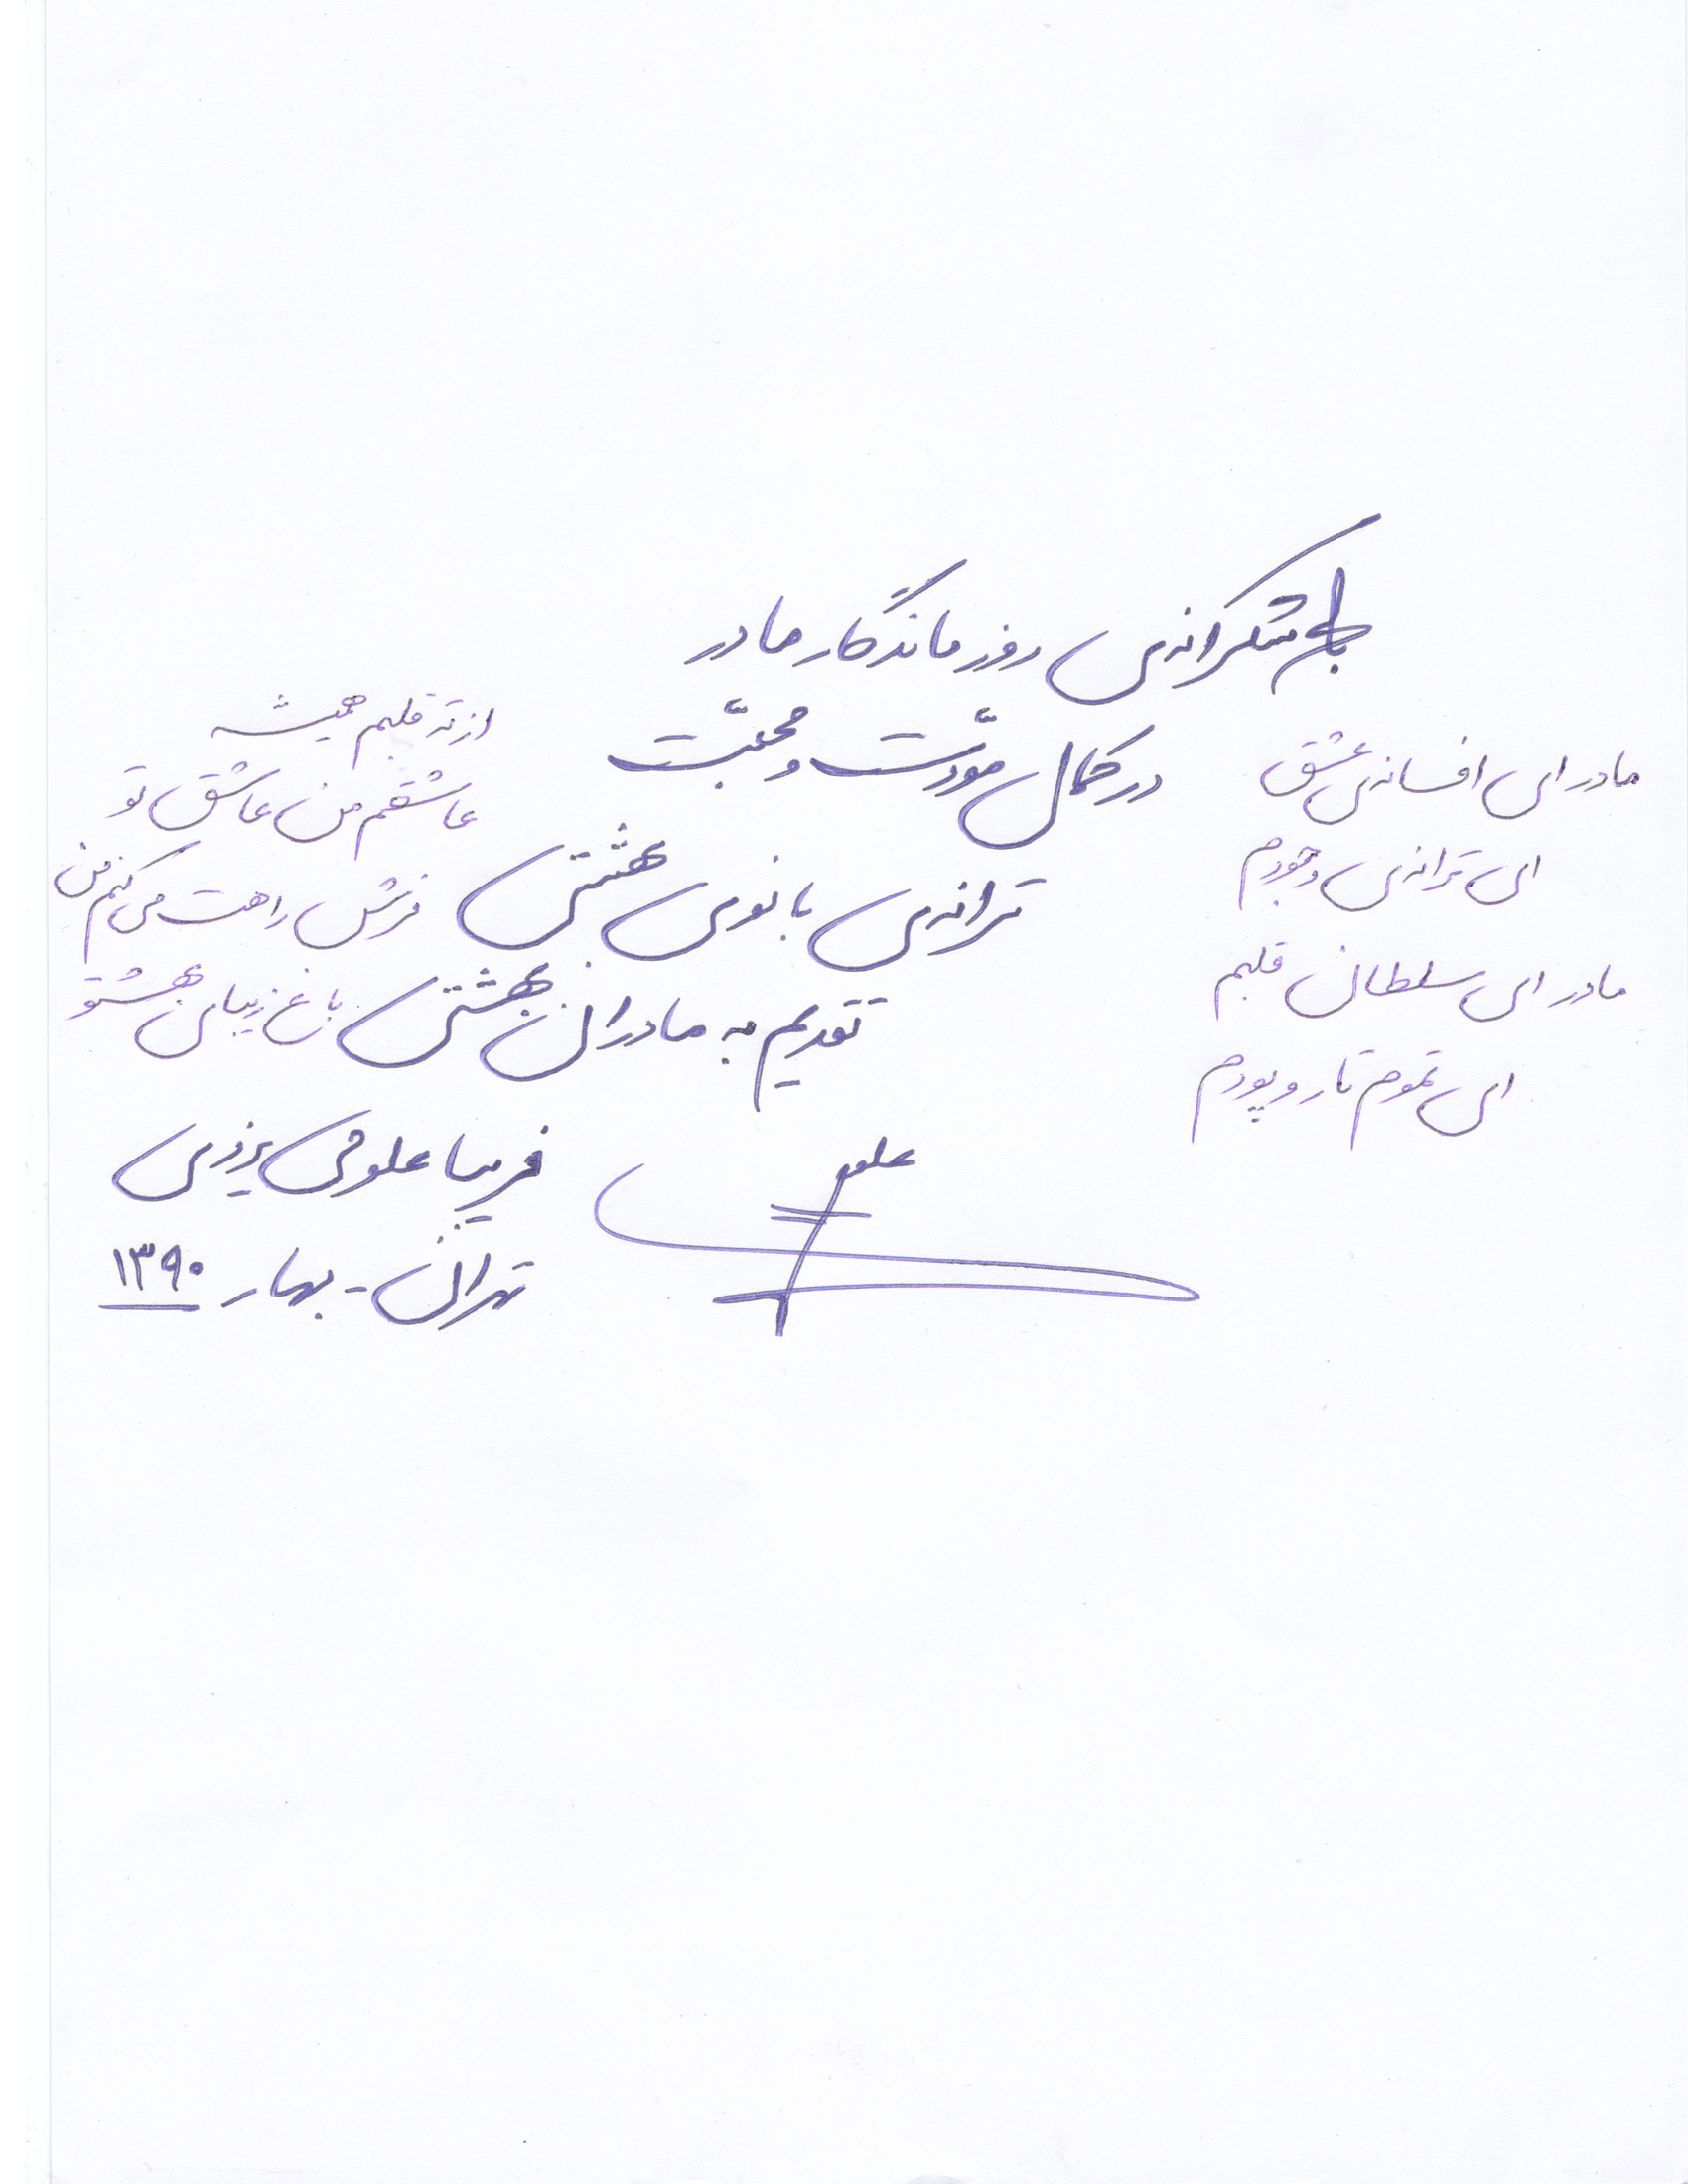 به شکرانه‌ی روز ماندگار مادر
در کمال مودّت و محبّت
ترانه‌ی بانوی عشق
تقدیم به مادران بهشتی
مادر ای افسانه‌ی عشق
ای ترانه‌ی وجودم
مادر ای سلطان قلبم
ای تموم تار و پودم
از ته قلبم همیشه
عاشقم من عاشق تو
فرش راهت می کنم من
باغ زیبای بهشتو
فریبا علومی یزدی
تهران - بهار ۱۳۹۰